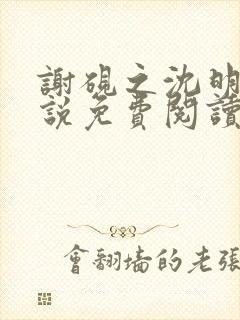 謝硯之沈明
說免費閱讀
會翻墻的老張